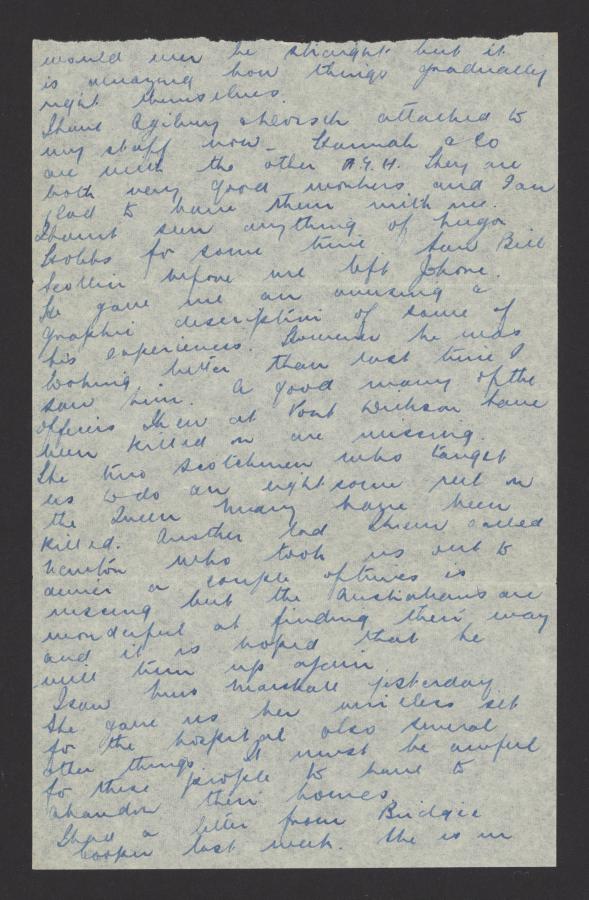 would ever be straight but it
is amazing how things gradually
right themselves.
I have Ogilvy attached to
my staff now - Hannah & Co
are with the other A.G.H. They are
both very good workers and I am
glad to have them with me.
I havent seen anything of Hugo
Hobbs for some time. Saw Bill
before we left Johore.
He gave me an amusing &
graphic description of some of
his experiences. However he was
looking better than last time I
saw him. A good many of the
officers then at Port Dickson have
been killed or are missing.
The two Scotchmen who taught
us to do an eightsome reel on
the Queen Mary have been
killed. Another lad called
who took us out to
dinner a couple of times is
missing but the Australians are
wonderful at finding their way
and it is hoped that he
will turn up again
I saw Mrs Marshall yesterday
She gave us her wireless set
for the hospital also several
other things. It must be awful
for these people to have to
abandon their homes
I had a letter from Bridgie
Cooper last week. She is in